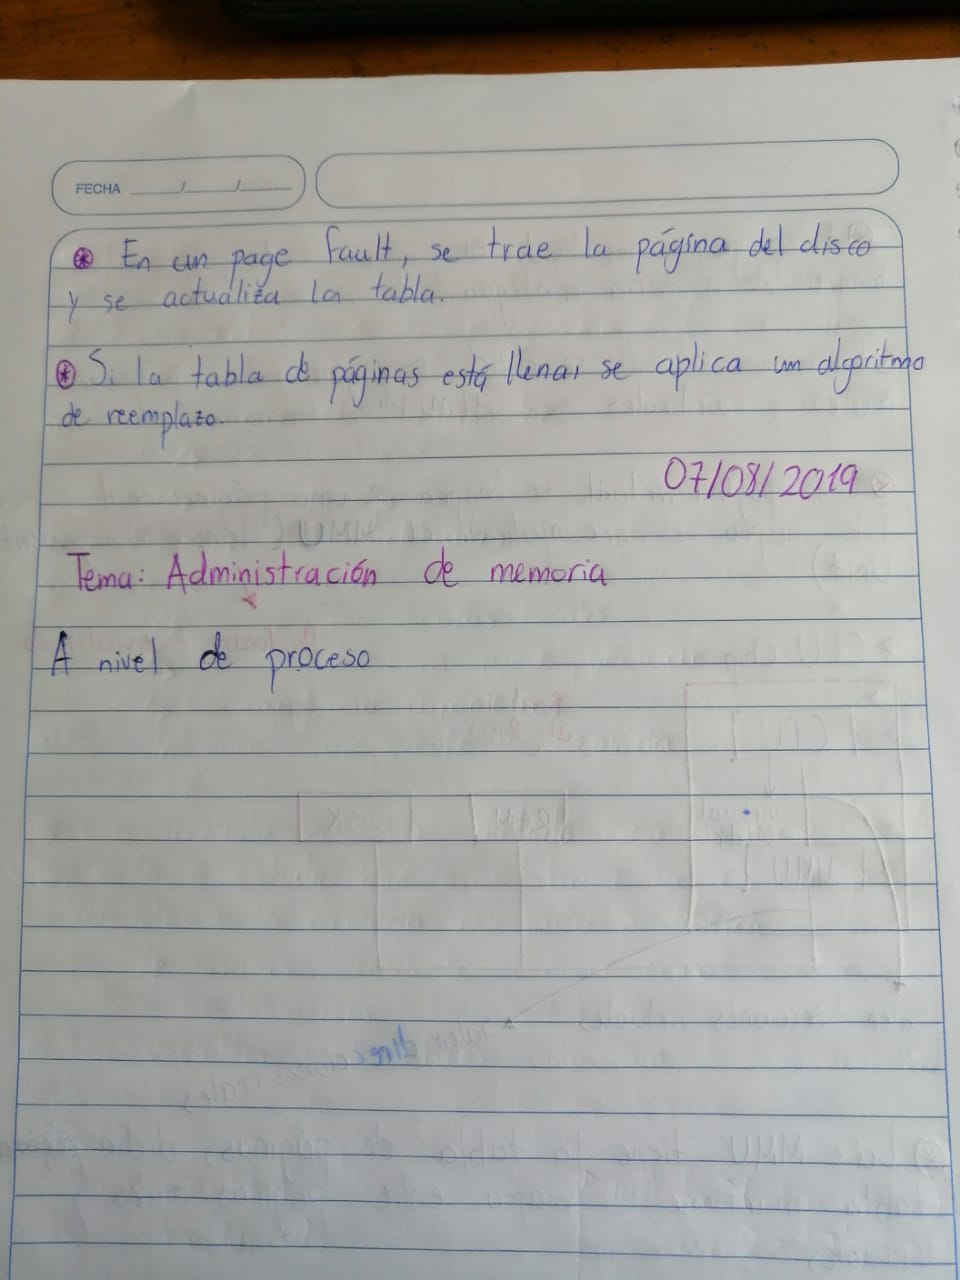 FECHA / /
* En un page fault, se trae la página del disco
y se actualiza la tabla.
* Si la tabla de páginas está llena, se aplica un algoritmo
de reemplazo.
07/08/2019
Tema: Administración de memoria
A nivel de proceso